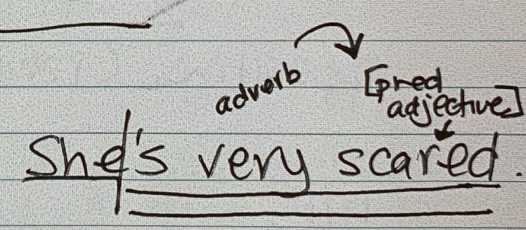 adverb
[pred
adjective]
She's very scared.